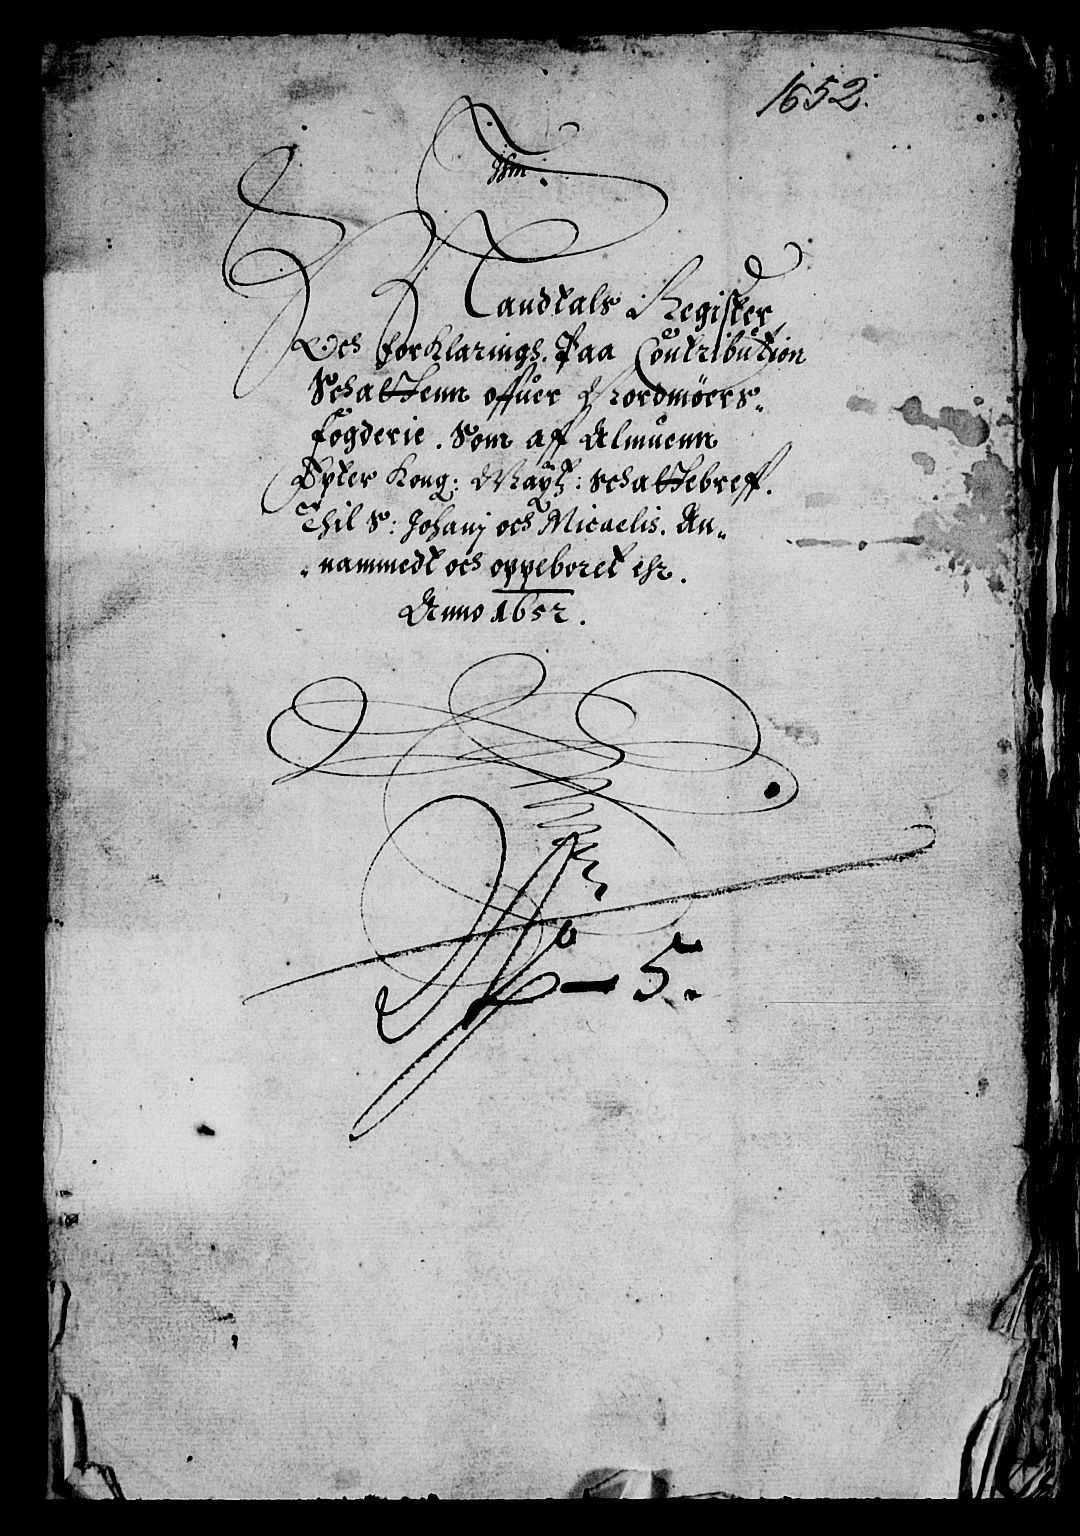 1652.
Jhm.
Mandtals Register
Och forklaringh. Paa Contribution
Schattenn offuer Nordmöers
fogderie. Som aff Almuenn
Epter Kong: Maytz: Schattebreff.
Thil S: Johanj och Micaelis. An=
=nammedt och oppeboret ehr.
Anno 1652.
No - 5.